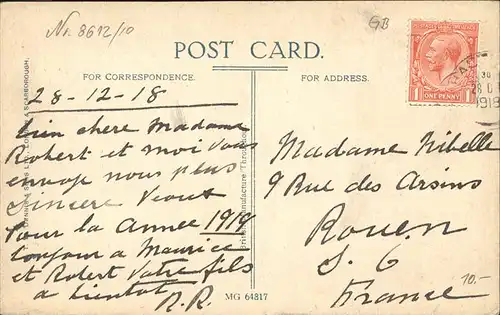 Nr. 8612/10
GB
POST CARD.
FOR CORRESPONDENCE.
FOR ADDRESS.
ONE PENNY
28 D
191
28-12-18
bien chere Madame
Robert et moi vous
envoye nous plus
Sincere Veoux
Pour la Annee 1919
bonjour a Maurice
et Robert Votre fils
a bientot
R.R.
Madame Nibelle
9 Rue des Arsins
Rouen
S. 6
France
10.-
British Manufacture Throughout
MG 64817